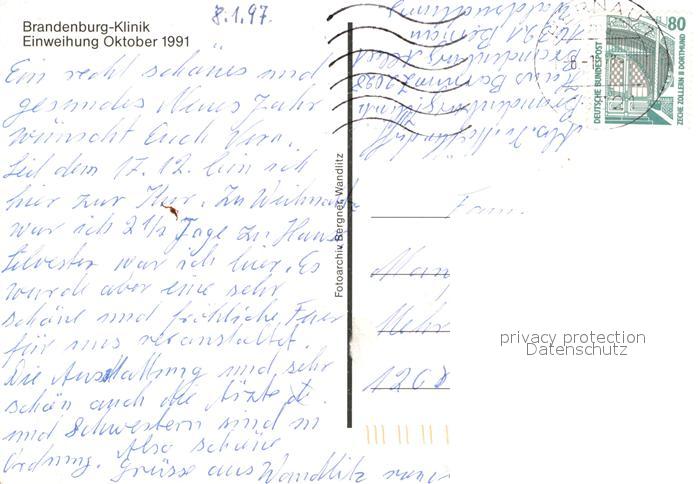 Brandenburg-Klinik
Einweihung Oktober 1991
8.1.97.
Ein recht schönes und
gesundes Neues Jahr
wünscht Euch Vera.
Seit dem 17.12. bin ich
hier zur Kur. Zu Weihnacht
war ich 2 1/2 Tage zu Hause
Silvester war ich hier. Es
wurde aber eine sehr
schöne und fröhliche Feier
für uns veranstaltet.
Die Ausstattung sehr
schön auch die Ärzte
und Schwestern sind in
Ordnung. Also schöne
Grüsse aus Wandlitz
Fotoarchiv Bergner, Wandlitz
Brandenburgklinik
16321 Bernau
BERNAU
DEUTSCHE BUNDESPOST
80
ZECHE ZOLLERN II DORTMUND
Fam.
privacy protection
Datenschutz